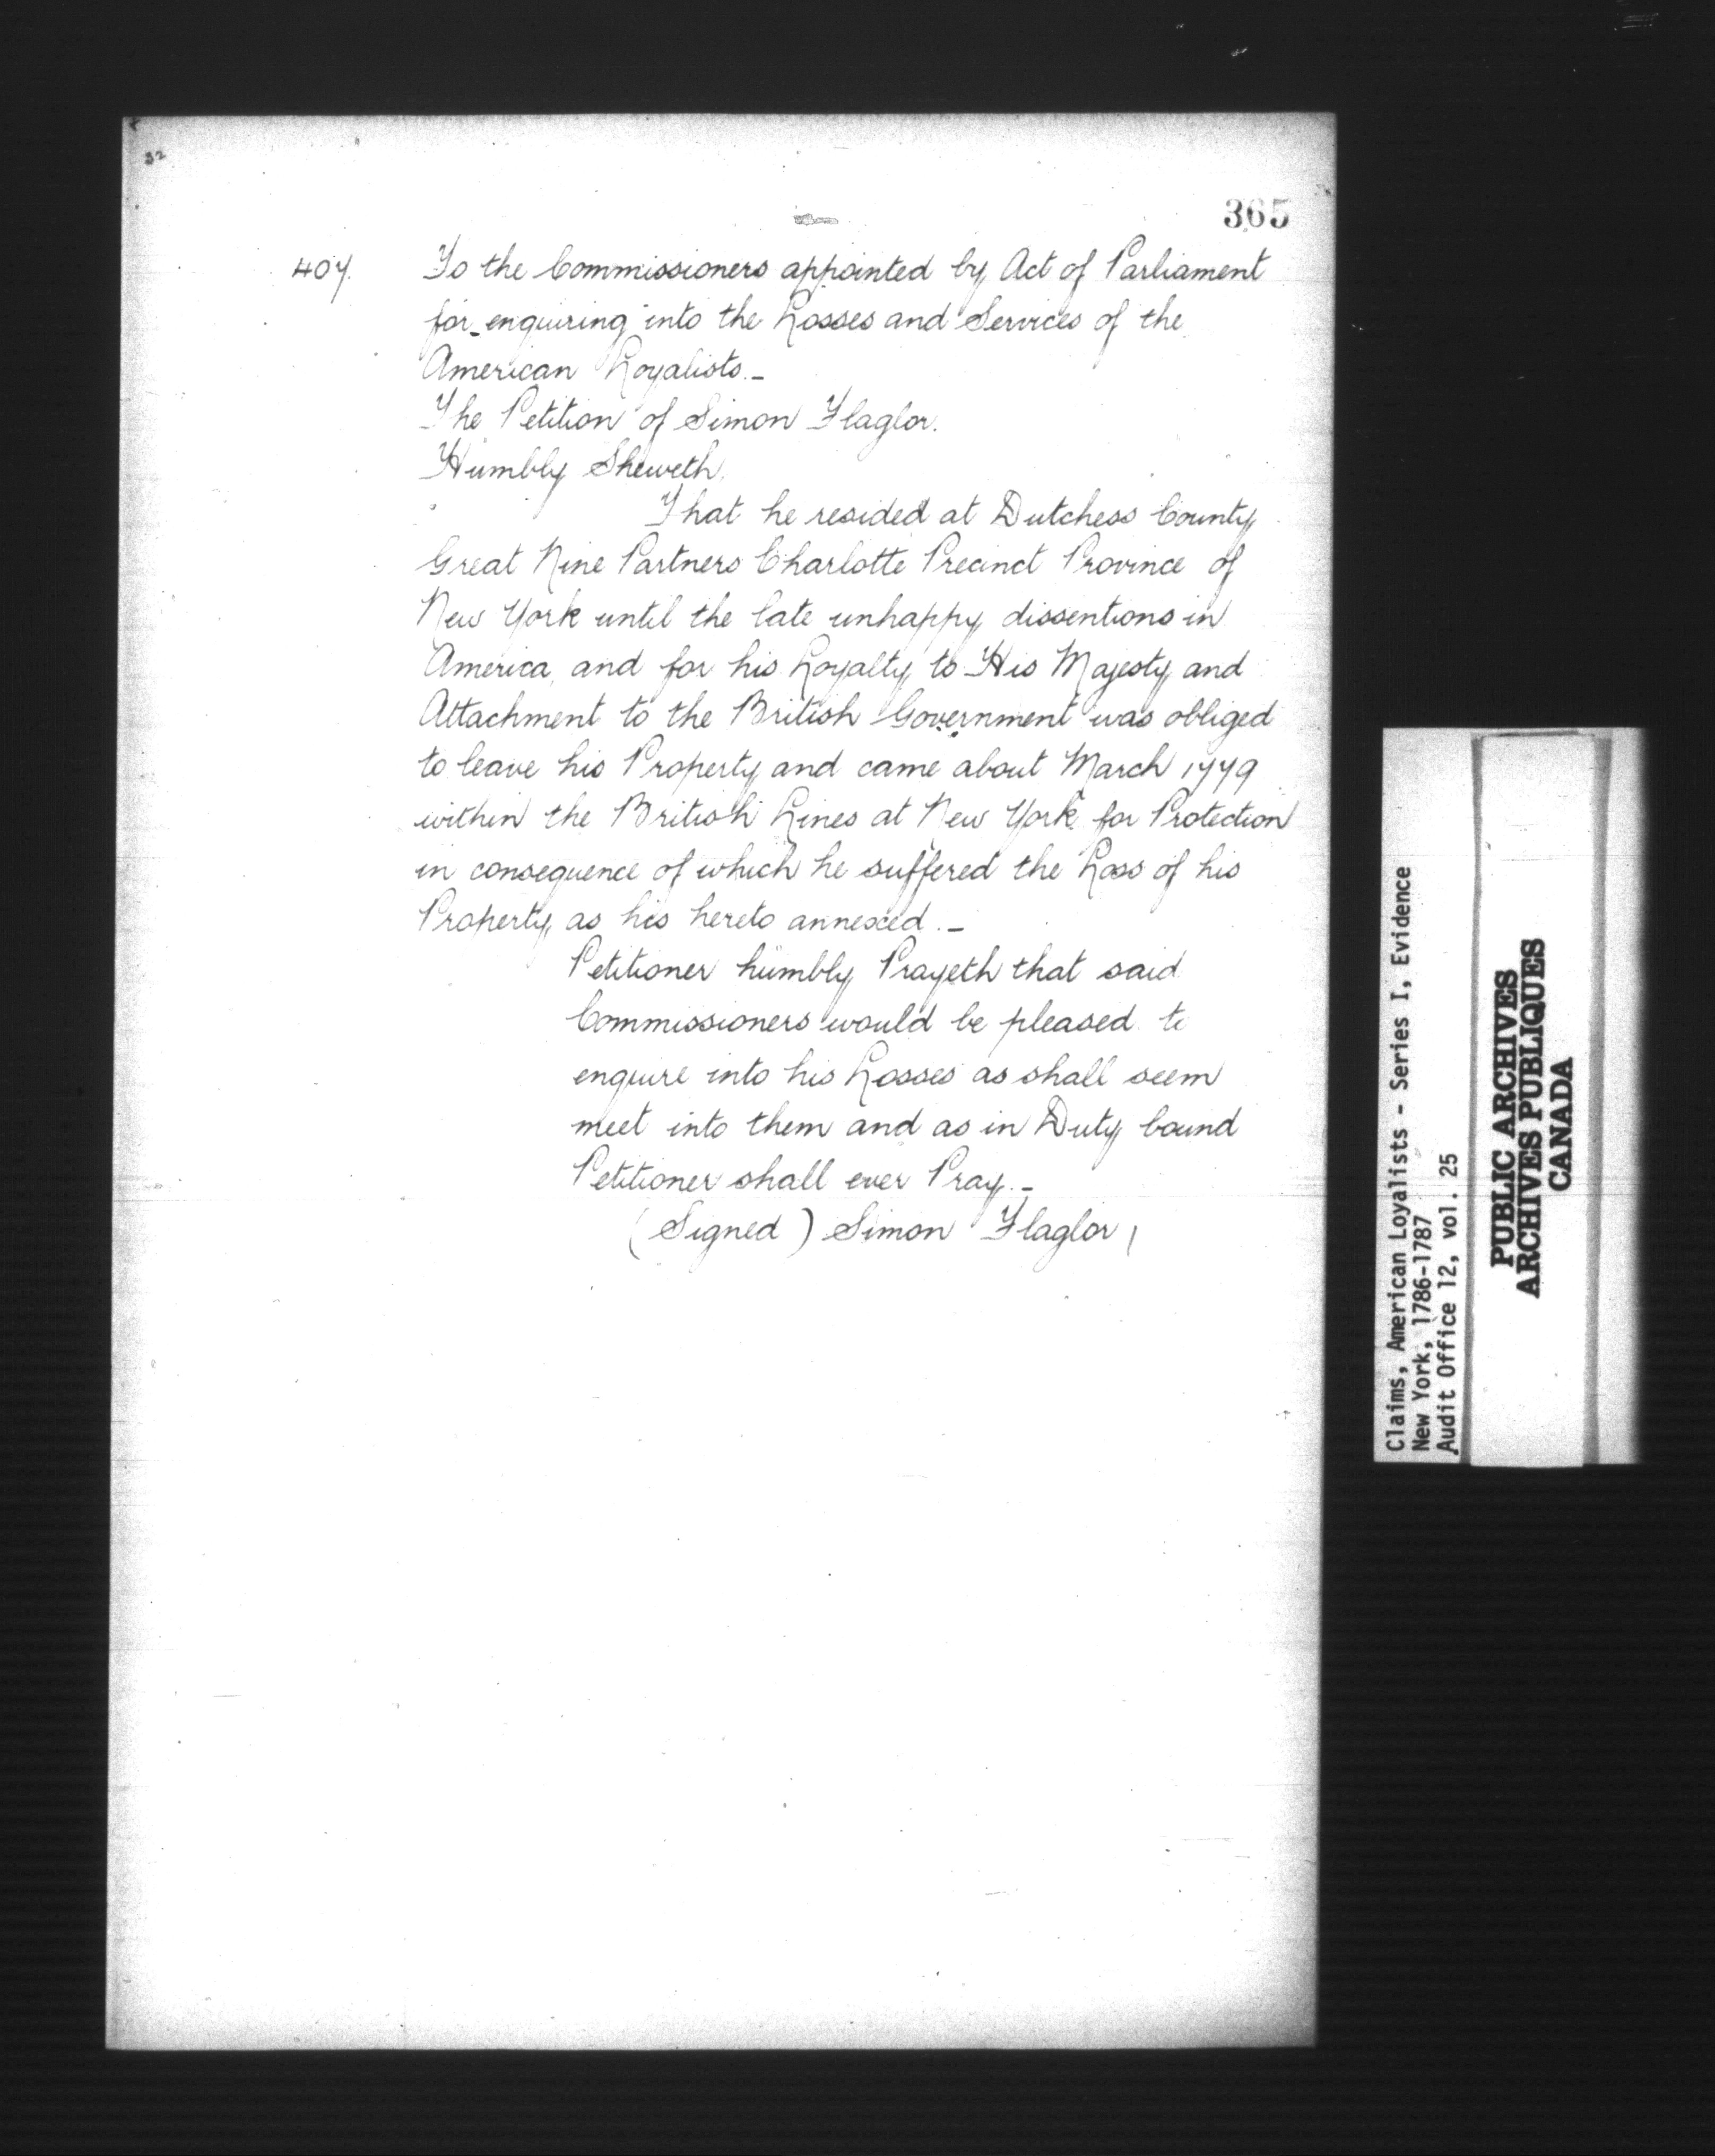 32
365
407.
To the Commissioners appointed by Act of Parliament
for enquiring into the Losses and Services of the
American Loyalists.–
The Petition of Simon Flaglor.
Humbly Sheweth,
That he resided at Dutchess County,
Great Nine Partners Charlotte Precinct Province of
New York until the late unhappy dissentions in
America, and for his Loyalty to His Majesty and
Attachment to the British Government was obliged
to leave his Property and came about March 1779
within the British Lines at New York for Protection
in consequence of which he suffered the Loss of his
Property as his hereto annexed.–
Petitioner humbly Prayeth that said
Commissioners would be pleased to
enquire into his Losses as shall seem
meet into them and as in Duty bound
Petitioner shall ever Pray.–
(Signed) Simon Flaglor
Claims, American Loyalists - Series I, Evidence
New York, 1786-1787
Audit Office 12, vol. 25
PUBLIC ARCHIVES
ARCHIVES PUBLIQUES
CANADA